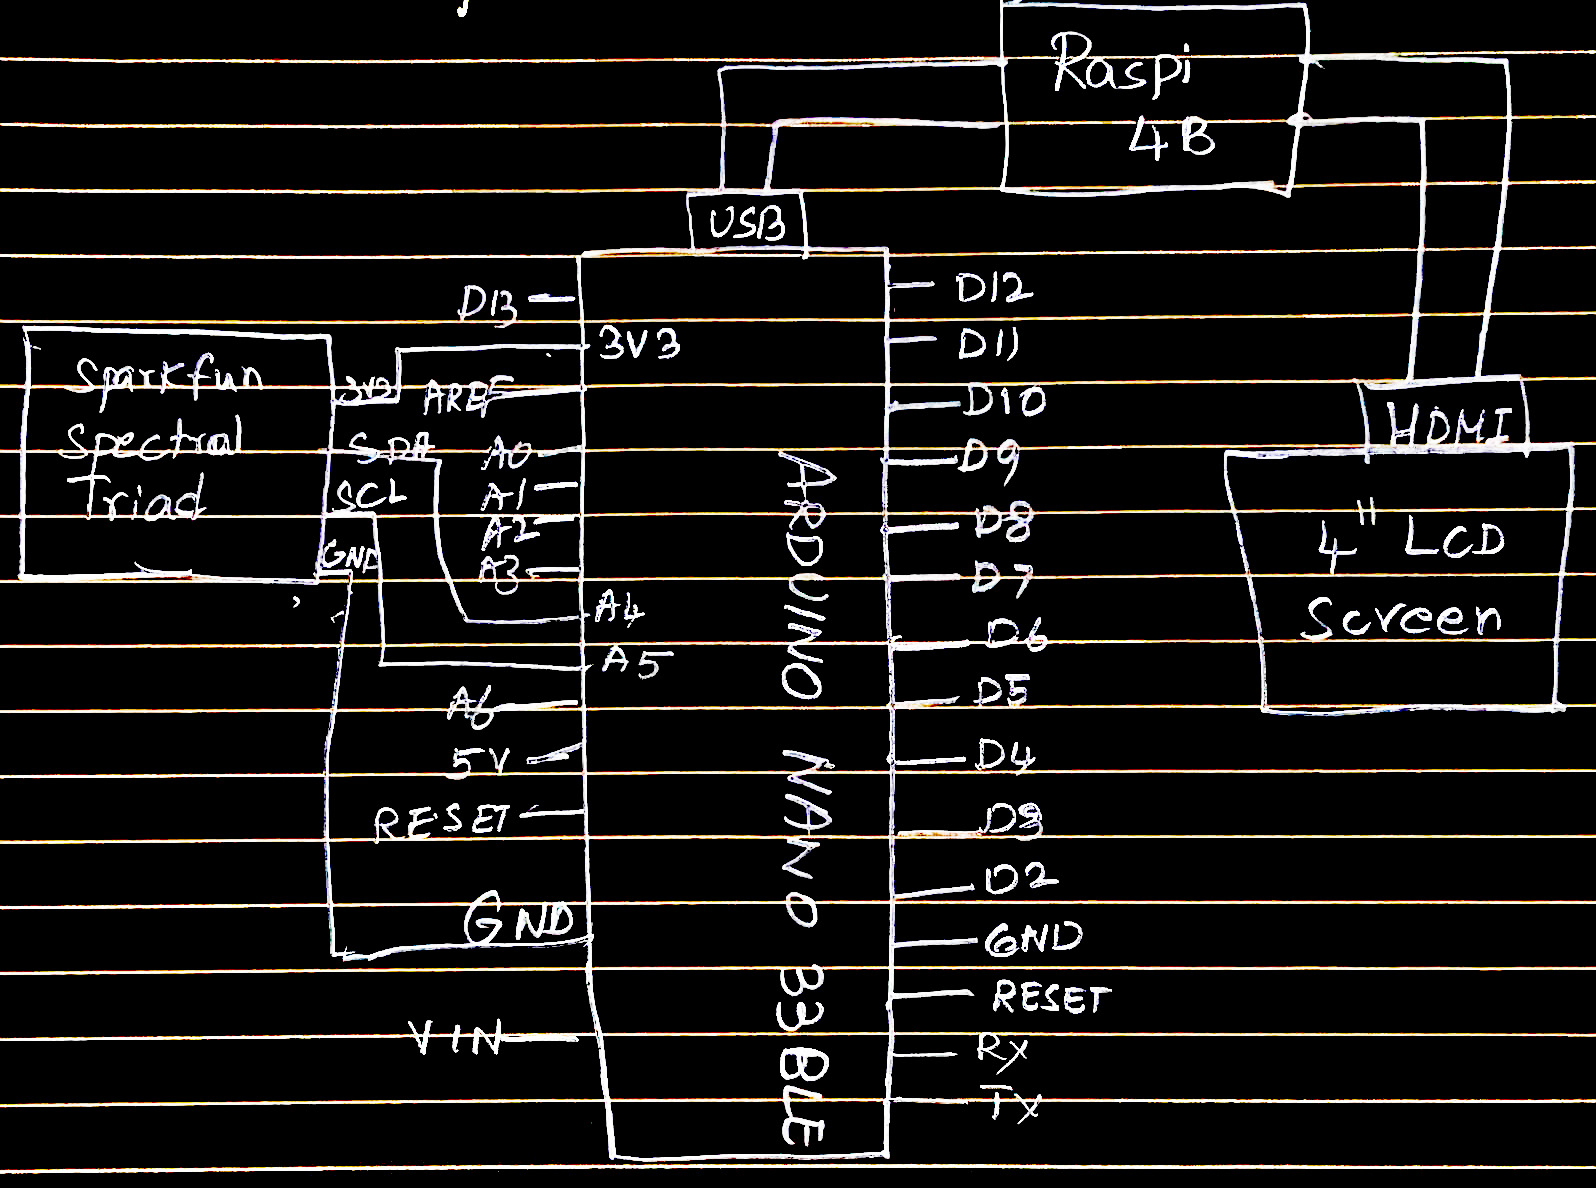 Raspi
4B
USB
D13
D12
3V3
D11
Sparkfun
Spectral
Triad
3V3
SDA
SCL
GND
AREF
D10
A0
D9
A1
A2
D8
A3
D7
A4
D6
A5
A6
D5
5V
D4
RESET
D3
D2
GND
GND
RESET
VIN
Rx
Tx
ARDUINO NANO 33 BLE
HDMI
4" LCD
Screen